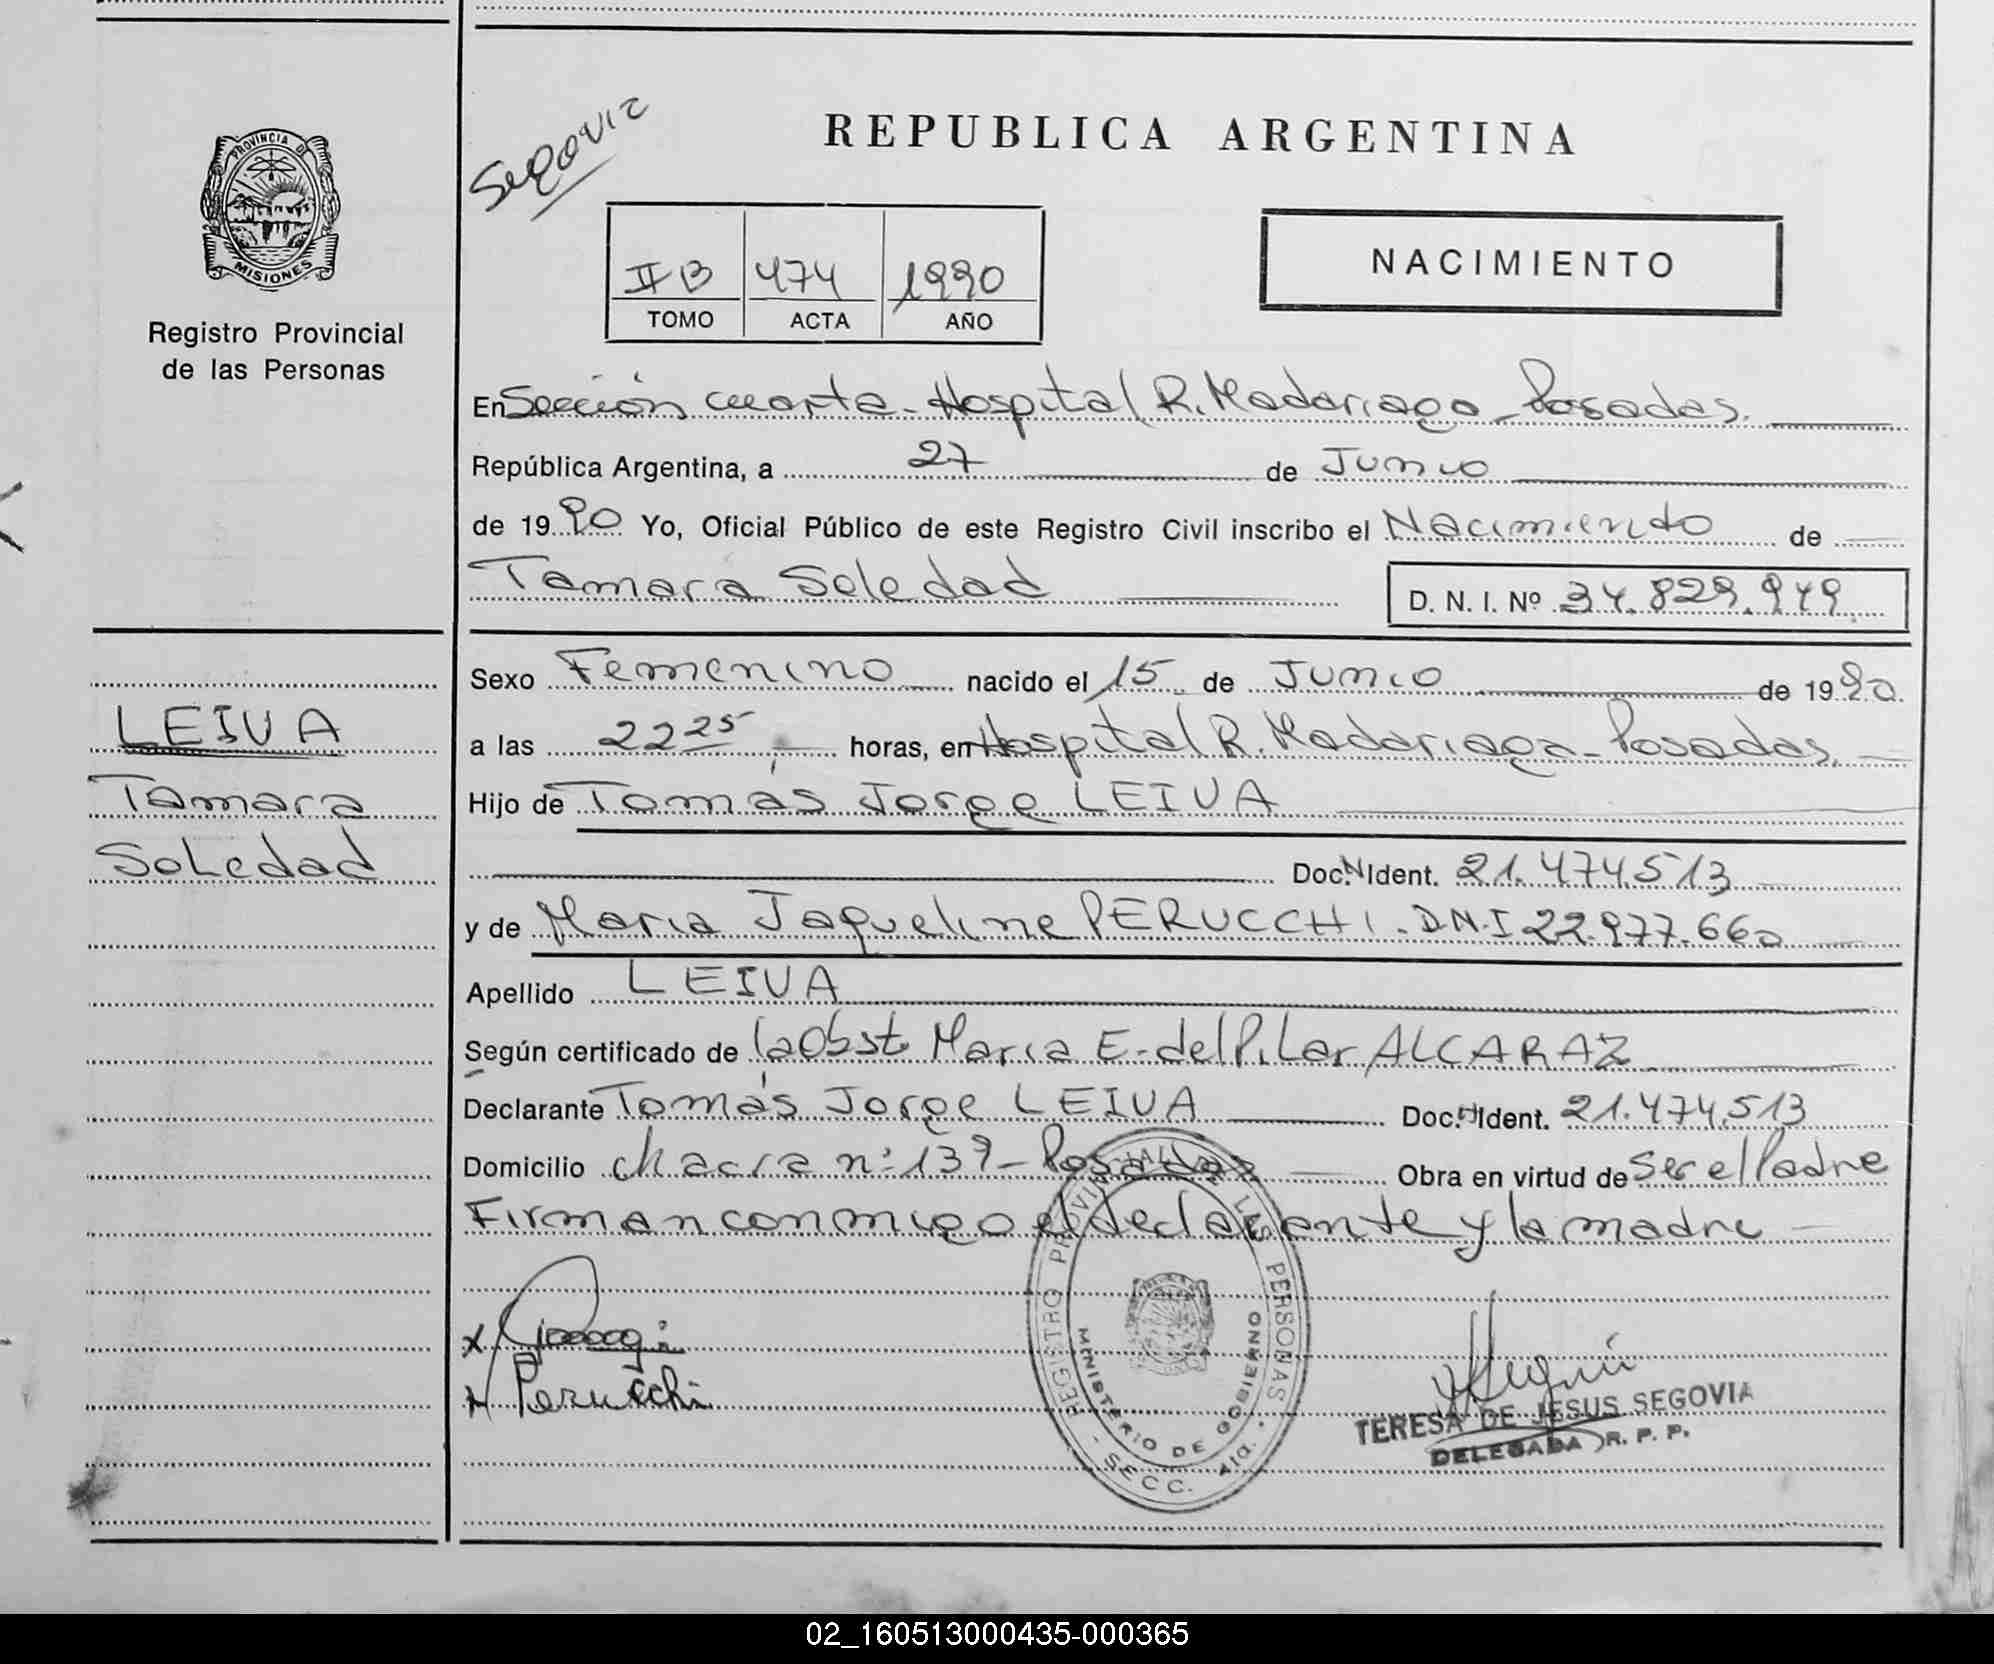 Segovia
REPUBLICA ARGENTINA
PROVINCIA DE
MISIONES
Registro Provincial
de las Personas
II B 474 1990
TOMO ACTA AÑO
NACIMIENTO
En Sección cuarta - Hospital R. Madariaga - Posadas.
República Argentina, a 27 de Junio
de 1990 Yo, Oficial Público de este Registro Civil inscribo el Nacimiento de
Tamara Soledad D. N. I. Nº 34.829.949
LEIVA
Tamara
Soledad
Sexo Femenino nacido el 15 de Junio de 1990.
a las 22 25 horas, en Hospital R. Madariaga - Posadas.
Hijo de Tomás Jorge LEIVA
Doc. N Ident. 21.474.513
y de Maria Jaqueline PERUCCHI. D.N.I 22.977.660
Apellido LEIVA
Según certificado de la Obst. Maria E. del Pilar ALCARAZ
Declarante Tomás Jorge LEIVA Doc. N Ident. 21.474.513
Domicilio chacra n: 139 - Posadas Obra en virtud de Ser el Padre
Firman conmigo el declarante y la madre
x
x Perucchi
REGISTRO PROVINCIAL DE LAS PERSONAS
MINISTERIO DE GOBIERNO
- SECC. 4ta. -
TERESA DE JESUS SEGOVIA
DELEGADA R. P. P.
02_160513000435-000365